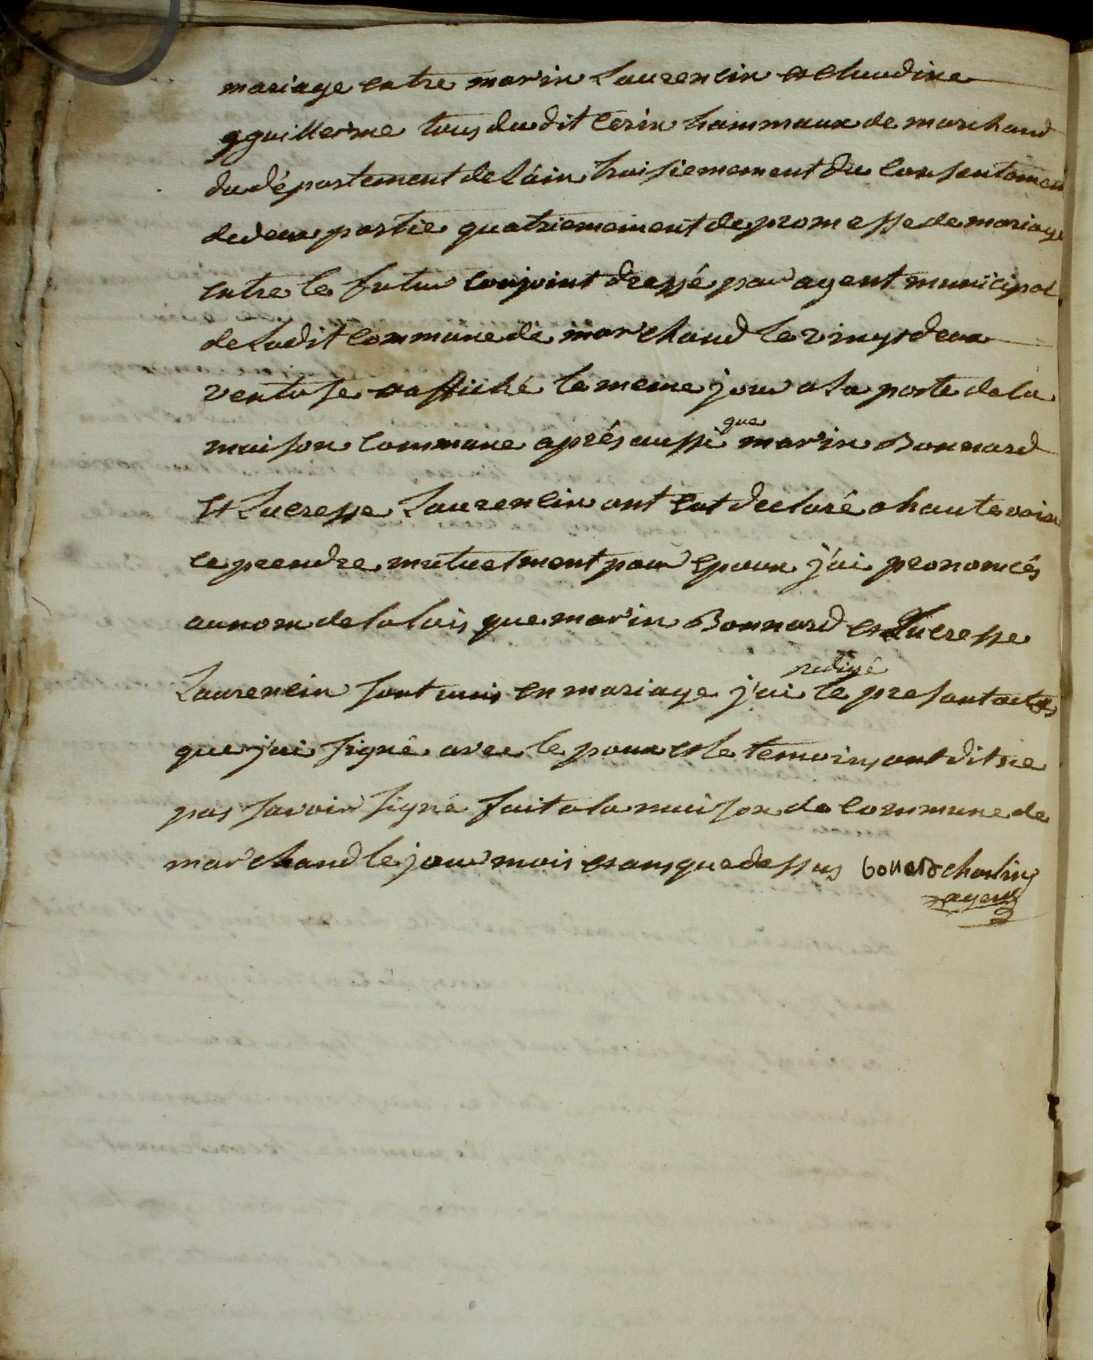 mariage entre marin Laurencin et Claudine
gguillerme tous du dit Cerin hammaux de marchand
du département de L'áin troisiemement du Consentement
de deux partie quatriemement de promesse de mariage
entre le futur Conjoint dressé par agent municipal
de Ladit Commune de marchand le vingt deux
ventose et affiché le meme jour a La porte de la
maison Commune aprés aussi que marin Bonnard
et Lucresse Laurencin ont Eut declaré a haute voix
ce prendre mutuelment pour Epoux j'ai prononcés
au nom de la lois que marin Bonnard et Lucresse
Laurencin sont unis en mariage j'ai redigé le presant acte
que j'ai signé avec le poux et le temoins ont dit ne
pas savoir signé fait a la maison de Commune de
marchand le jour mois et ans que dessus bonard
agent